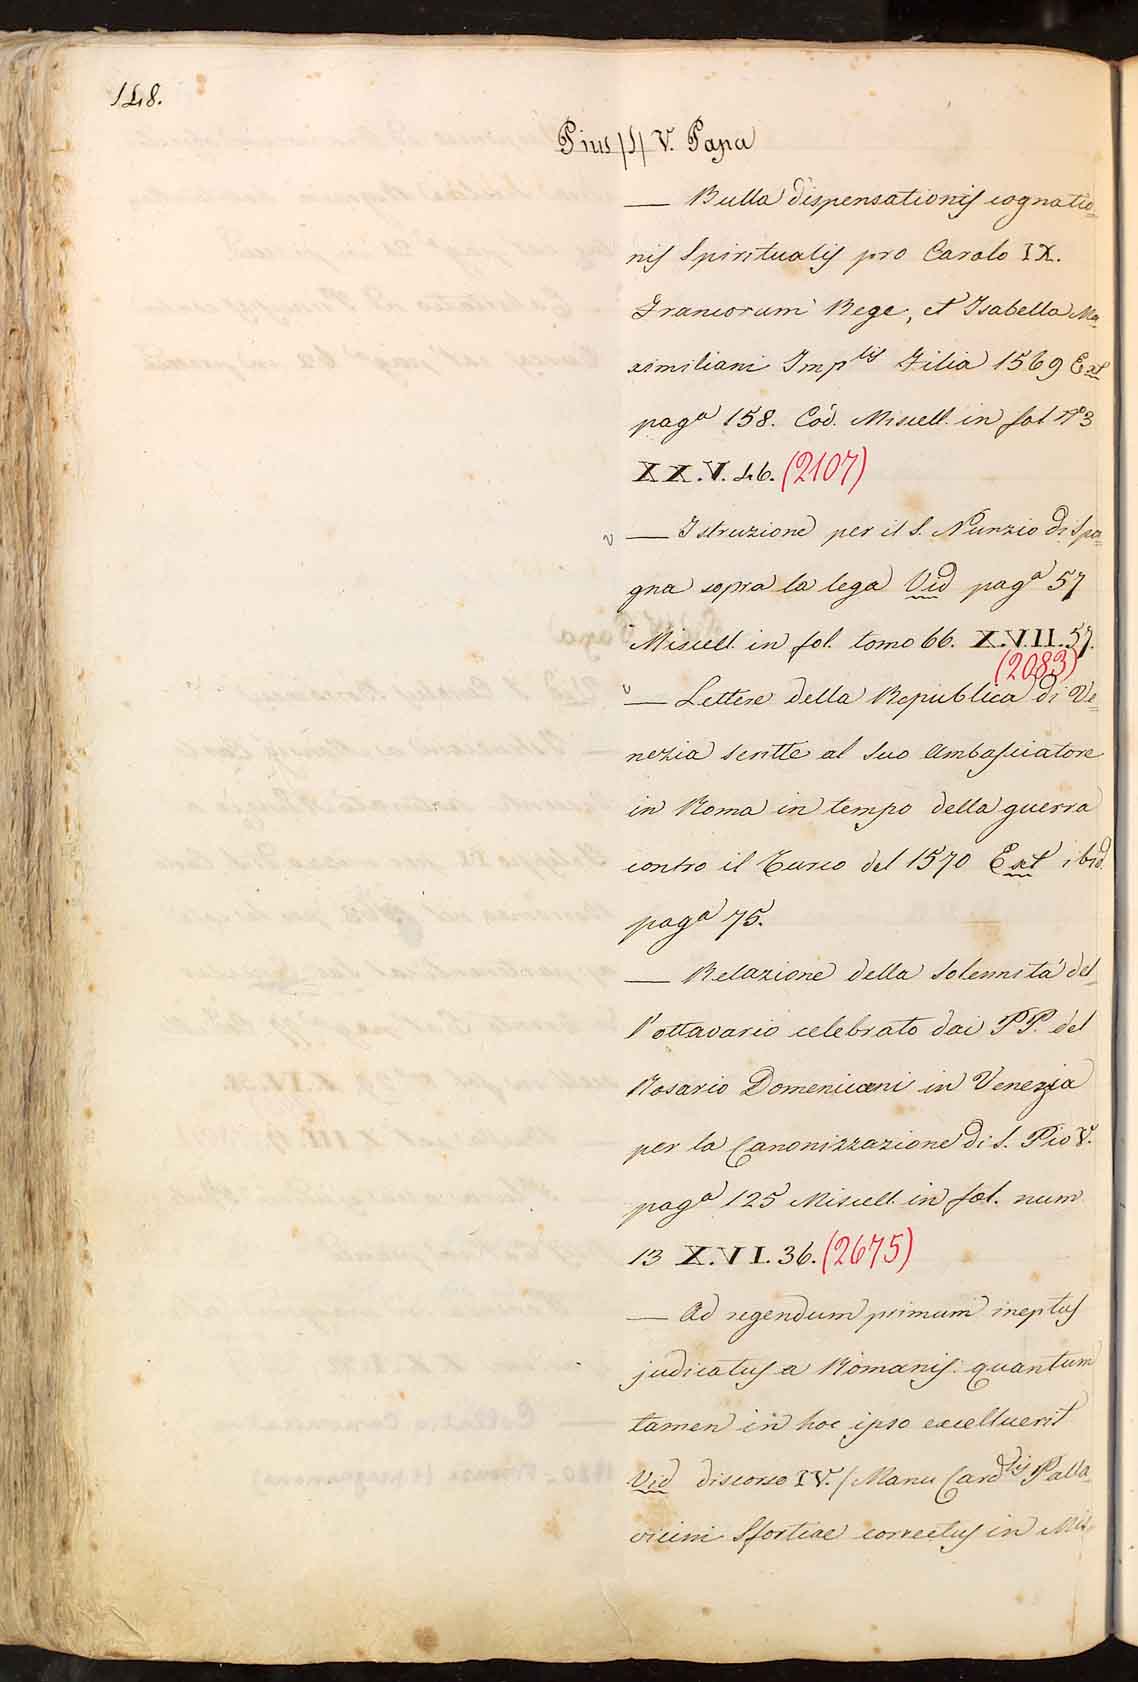 148.
Pius /S/ V. Papa
— Bulla dispensationis cognatio=
nis Spiritualis pro Carolo IX.
Francorum Rege, et Isabella Ma=
ximiliani Imp.lis Filia 1569 Ext
pag.a 158. Cod. Miscell. in fol. N.o 3
XX.V.46. (2107)
v — Istruzione per il S. Nunzio di Spa=
gna sopra la lega Vid pag.a 57
Miscell. in fol. tomo 66. X.VII.57.
(2083)
v — Lettere della Republica di Ve=
nezia scritte al suo Ambasciatore
in Roma in tempo della guerra
contro il Turco del 1570 Ext ibid.
pag.a 75.
— Relazione della solennità del=
l'ottavario celebrato dai PP. del
Rosario Domenicani in Venezia
per la Canonizzazione di S. Pio V.
pag.a 125 Miscell. in fol. num
13 X.VI.36. (2675)
— Ad regendum primum ineptus
judicatus a Romanis: quantum
tamen in hoc ipso excelluerit
Vid discorso IV. /Manu Card.lis Palla=
vicini Sfortiae correctus in Mis=